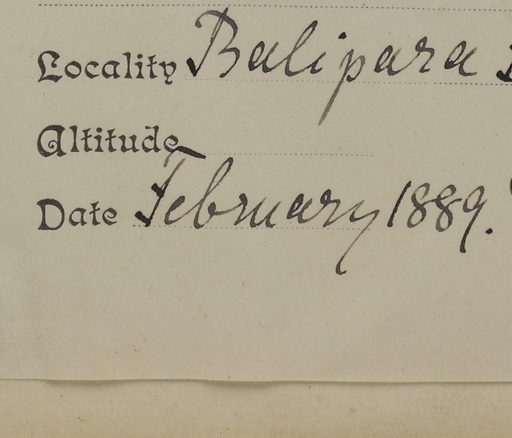 Locality Balipara
Altitude
Date February 1889.